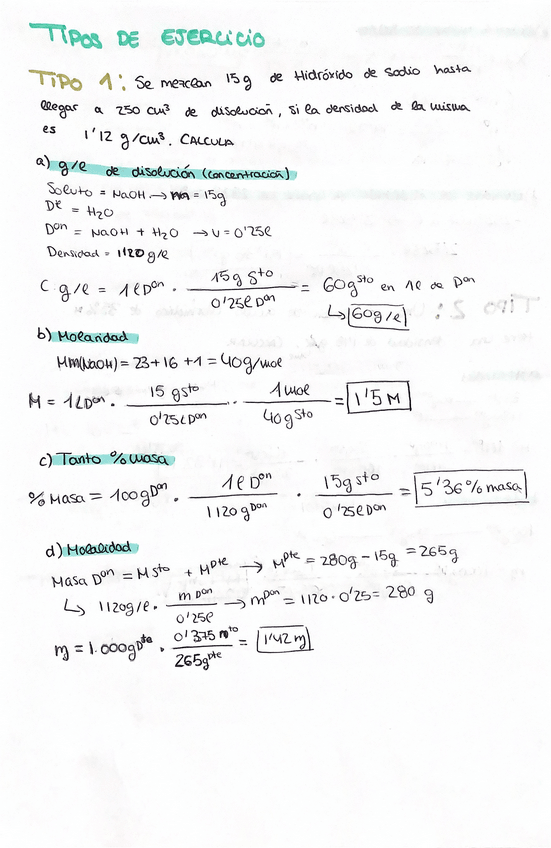 TIPOS DE EJERCICIO
TIPO 1: Se mezclan 15 g de Hidróxido de Sodio hasta
llegar a 250 cm³ de disolución, si la densidad de la misma
es 1'12 g/cm³. CALCULA
a) g/l de disolución (concentración)
Soluto = NaOH → = 15g
Dte = H2O
Don = NaOH + H2O → V = 0'25l
Densidad = 1120 g/l
C g/l = 1 l Don · 15 g Sto / 0'25l Don = 60 g sto en 1l de Don
↳ 60g/l
b) Molaridad
Mm(NaOH) = 23+16+1 = 40g/mol
M = 1 L Don · 15 gsto / 0'25L Don · 1 mol / 40g Sto = 1'5 M
c) Tanto % masa
% Masa = 100g Don · 1l Don / 1120g Don · 15g sto / 0'25l Don = 5'36 % masa
d) Molalidad
Masa Don = M sto + M Dte → M Dte = 280g - 15g = 265g
↳ 1120g/l · m Don / 0'25l → m Don = 1120 · 0'25 = 280 g
m = 1.000g Dte · 0'375 / 265g Dte = 1'42 m
TIPO 2: